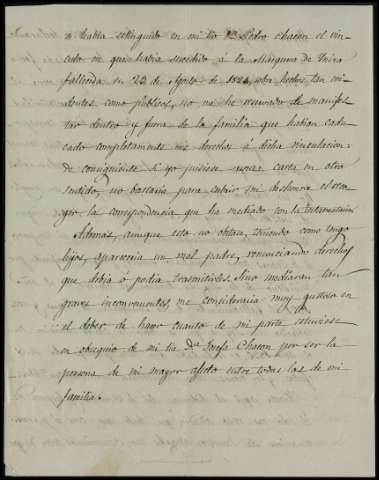 se habia estinguido en mi tio D. Pedro Chacon el vin-
culo en que habia sucedido á la Marquesa de
fallecida en 23 de Agosto de 1824, sobre hechos tan
como públicos, yo no he vacilado de manifes-
tar dentro y fuera de la familia que habian cadu-
cado completamente mis derechos á dicha vinculacion:
de consiguiente si yo quisiese sacar cartas en otro
sentido, no bastaria para cubrir mi deshonra el reco-
ger la correspondencia que ha mediado con la
Además, aunque esto no obstase, teniendo como tengo
hijos, apareceria un mal padre, renunciando derechos
que debia ó podia trasmitirles. Si no mediaran tan
graves inconvenientes, me consideraria muy gustoso en
el deber de hacer cuanto de mi parte estuviese
en obsequio de mi tia Dª Josefa Chacon por ser la
persona de mi mayor afecto entre todas las de mi
familia.